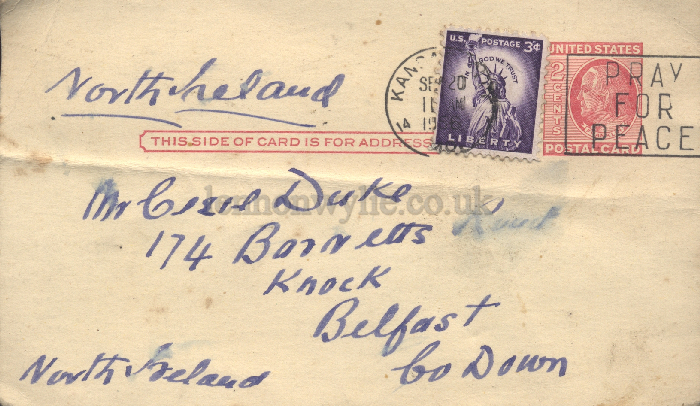 North Ireland
U.S. POSTAGE 3¢
IN GOD WE TRUST
LIBERTY
UNITED STATES
2 CENTS
POSTAL CARD
KAN
SEP 20
19
PRAY
FOR
PEACE
THIS SIDE OF CARD IS FOR ADDRESS
Mr Cecil Duke
lennonwylie.co.uk
174 Barnetts Road
Knock
Belfast
Co Down
North Ireland